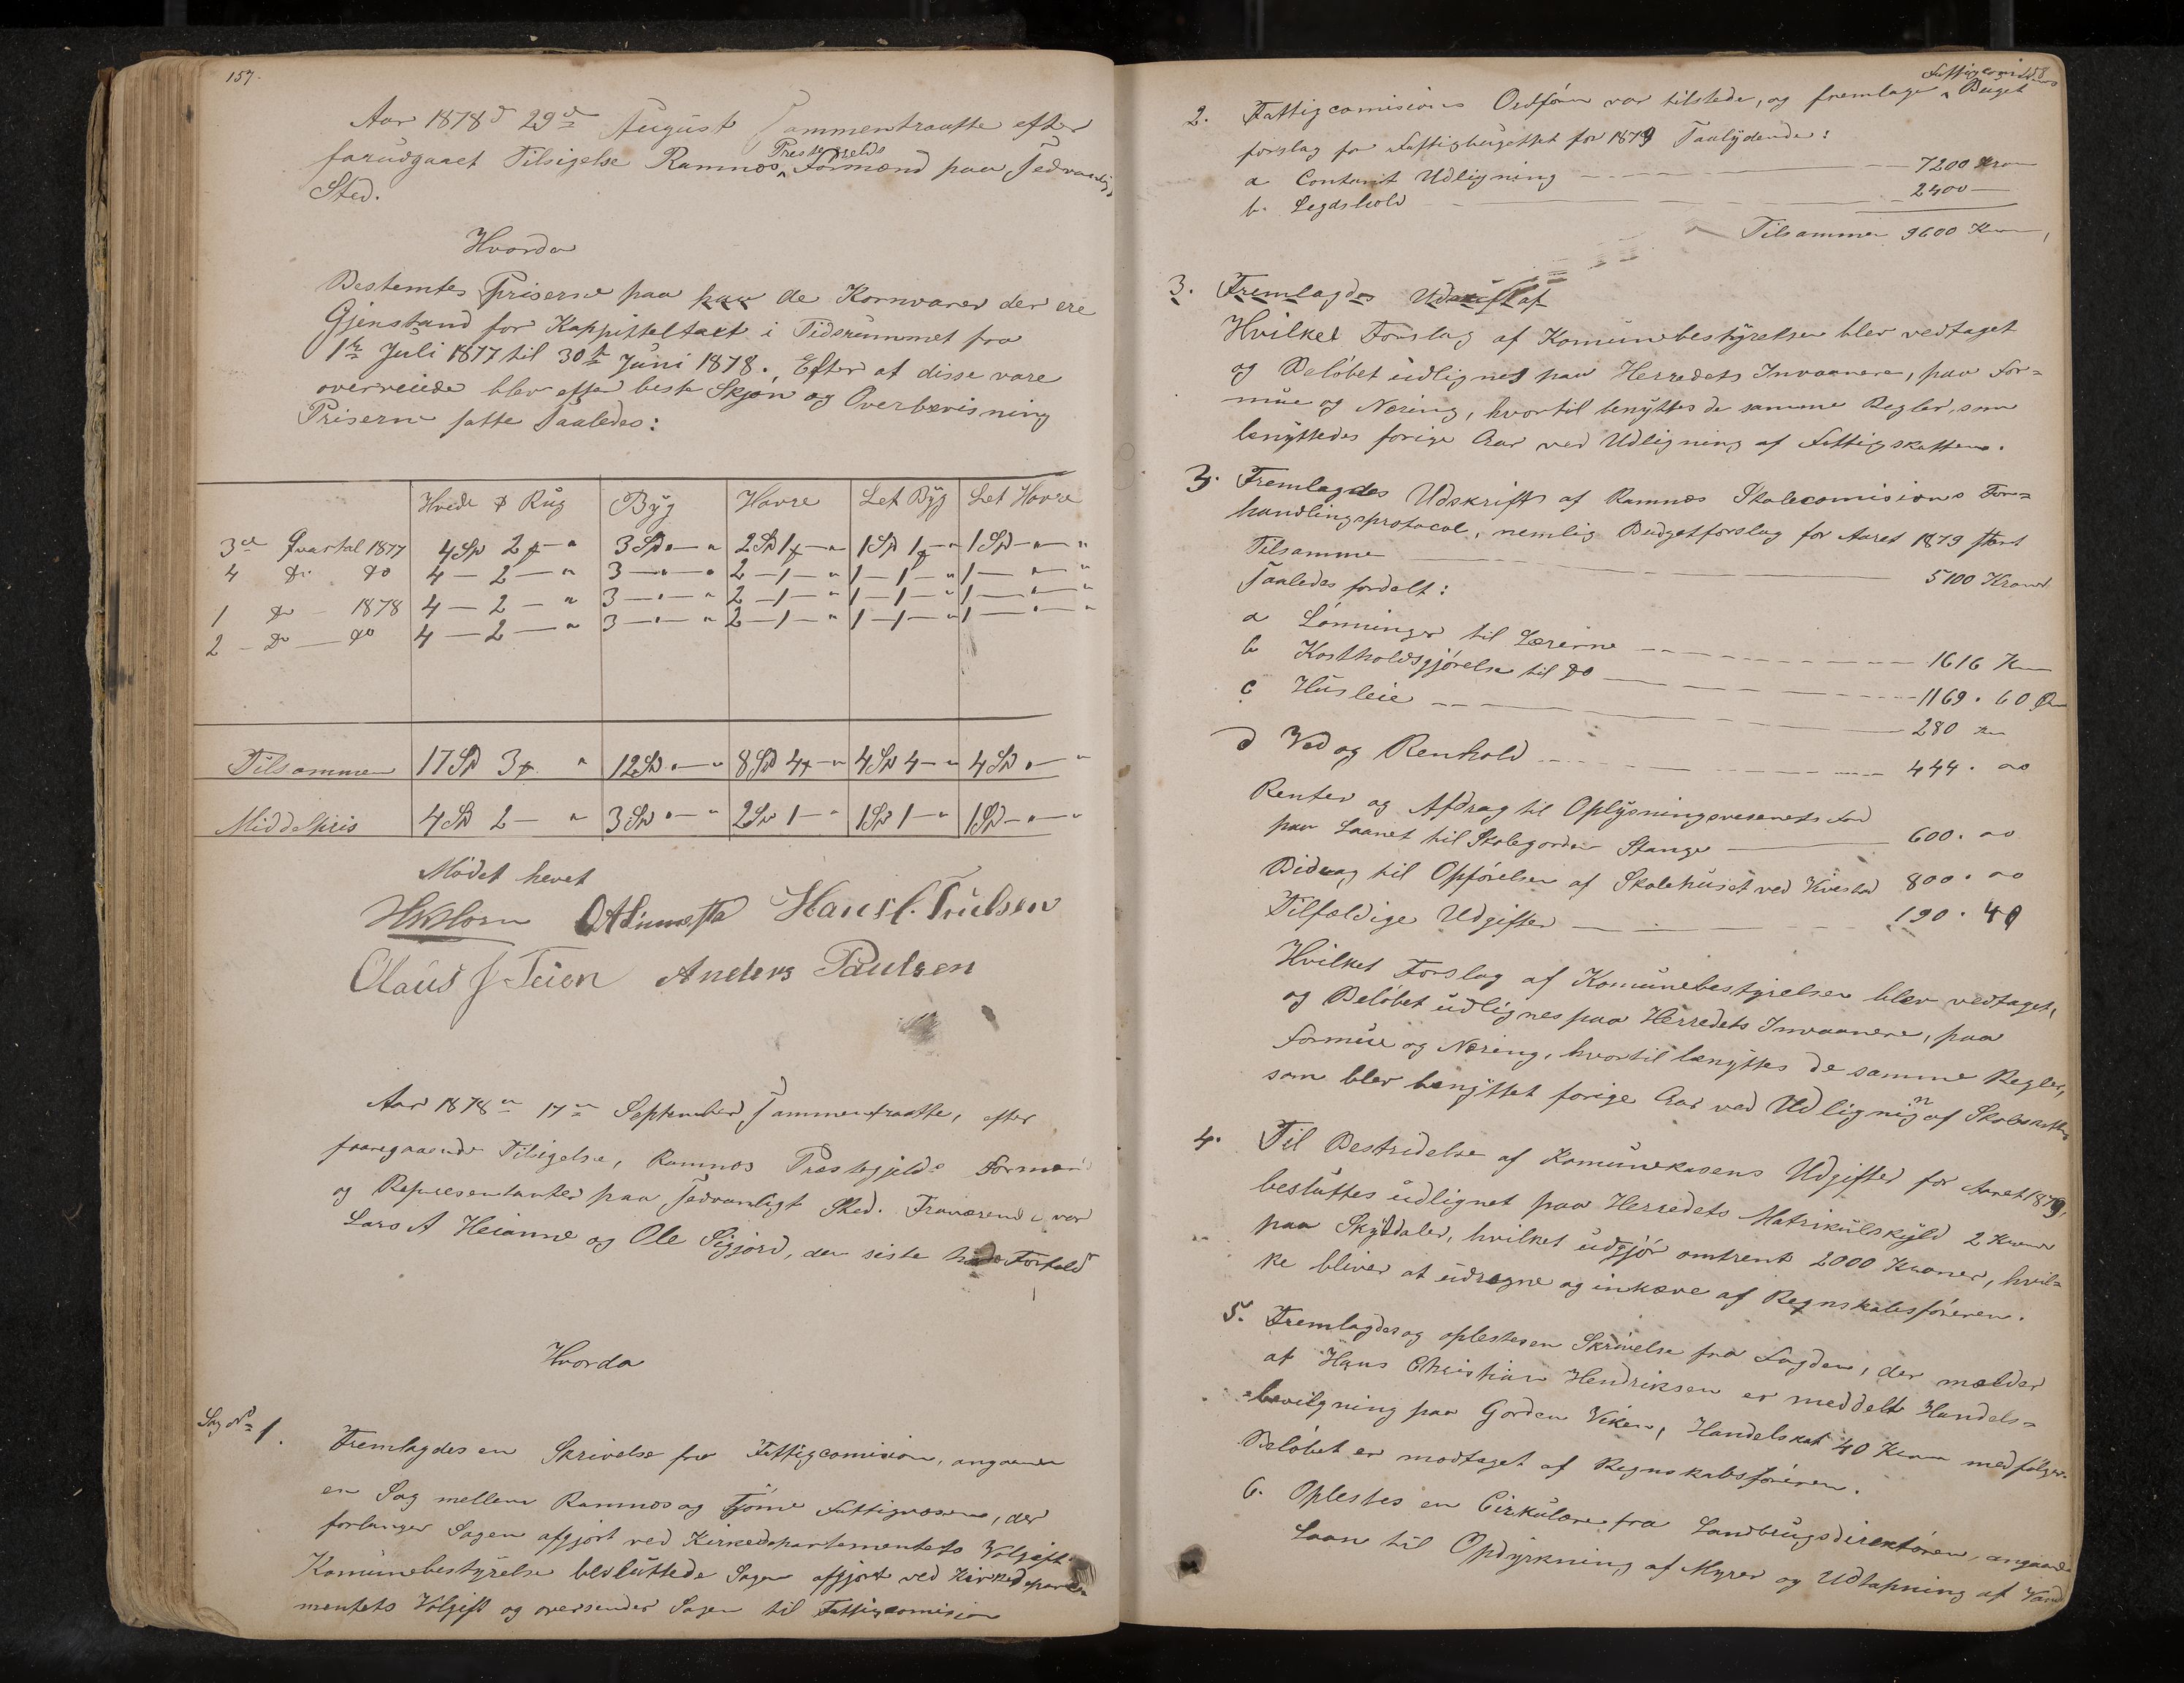 157.
Aar 1878 d 29de August Sammentraatte efter
forudgaaet Tilsigelse Ramnæs Prestegjelds Formænd paa Sedvanligt
Sted.
Hvorda
Bestemtes Priserne paa paa de Kornvarer der ere
Gjenstand for Kappitteltaxt i Tidsrummet fra
1te Juli 1877 til 30te Juni 1878. Efter at disse vare
overveiede blev efter beste Skjøn og Overbevisning
Priserne satte saaledes:
Hvede & Rug Byg Havre Let Byg Let Havre
3de Qvartal 1877 4 Spd 2 – " 3 Spd " – " 2 Spd 1 – " 1 Spd 1 – " 1 Spd – " – "
4 do do 4 – 2 – " 3 – " – " 2 – 1 – " 1 – 1 – " 1 – " – "
1 do – 1878 4 – 2 – " 3 – " – " 2 – 1 – " 1 – 1 – " 1 – " – "
2 – do – do 4 – 2 – " 3 – " – " 2 – 1 – " 1 – 1 – " 1 – " – "
Tilsammen 17 Spd 3 " 12 Spd " – " 8 Spd 4 – " 4 Spd 4 – " 4 Spd " – "
Middelpris 4 Spd 2 – " 3 Spd " – " 2 Spd 1 – " 1 Spd 1 – " 1 Spd – " – "
Mødet hevet
HKHorn OALinnestad Hans C. Trulsen
Olaus J Teien Anders Paulsen
Aar 1878 den 17de September Sammentraatte, efter
foregaaende Tilsigelse, Ramnæs Præstegjelds Formænd
og Representanter paa Sedvanligt Sted. Fraværende var
Lars A Heianne og Ole Sigjord, den siste havde Forfald
Hvorda
Sag No 1.
Fremlagdes en Skrivelse fra Fattigcomision, angaaende
en Sag mellem Ramnæs og Tjøme Fattigvæsene, der
forlanger Sagen afgjort ved Kirkedepartementets Volgift.
Komunebestyrelse besluttede Sagen afgjort ved Kirkedepare-
mentets Volgift og oversender Sagen til Fattigcomision
158
2. Fattigcomisions Ordfører var tilstede, og fremlage Fattigcomisions Buget
forslag for Fattigbugettet for 1879 Saalydende:
a Contant Udligning 7200 Kroner
b. Legdshold 2400 –
Tilsammen 9600 Kroner,
3. Fremlagdes Udskrift af
Hvilket Forslag af Komunebestyrelsen blev vedtaget
og Beløbet udlignes paa Herredets Invaanere, paa For=
mue og Næring, hvortil benyttes de samme Regler, som
benyttedes forige Aar ved Udligning af Fattigskatten.
3. Fremlagdes Udskrift af Ramnæs Skolecomisions For=
handlingsprotocol, nemlig Budgetforslag for Aaret 1879 stort
Tilsammen 5100 Kroner
Saaledes fordelt:
a Lønninger til Lærerne 1616 Kr
b Kostholdsgjørelse til do 1169. 60 Øre
c Husleie 280 Kr
d Ved og Renhold 444. 00
Renter og Afdrag til Oplysningsvesenets Fond
paa Laanet til Skolegorden Stange 600. 00
Bidrag til Opførelsen af Skolehuset ved Kvestad 800. 00
Tilfældige Udgifter 190. 40
Hvilket Forslag af Komunebestyrelsen blev vedtaget,
og Beløbet udlignes paa Herredets Invaanere, paa
Formue og Næring, hvortil benyttes de samme Regler,
som blev benyttet forige Aar ved Udligning af Skoleskatten
4. Til Bestridelse af Komunekasens Udgifter for Aaret 1879,
besluttes udlignet paa Herredets Matrikulskyld 2 Kroner
paa Skylddaler, hvilket udgjør omtrent 2000 Kroner, hvil=
ke bliver at udregne og inkræve af Regnskabsføreren.
5. Fremlagdes og oplestes en Skrivelse fra Fogden, der melder
at Hans Christian Hendriksen er meddelt Handels=
bevilgning paa Gorden Viken, Handelskat 40 Kroner medfølger.
Beløbet er modtaget af Regnskabsføreren.
6. Oplestes en Cirkulære fra Landbrugsdirektøren, angaaende
Laan til Opdyrkning af Myrer og Udtapning af Vand